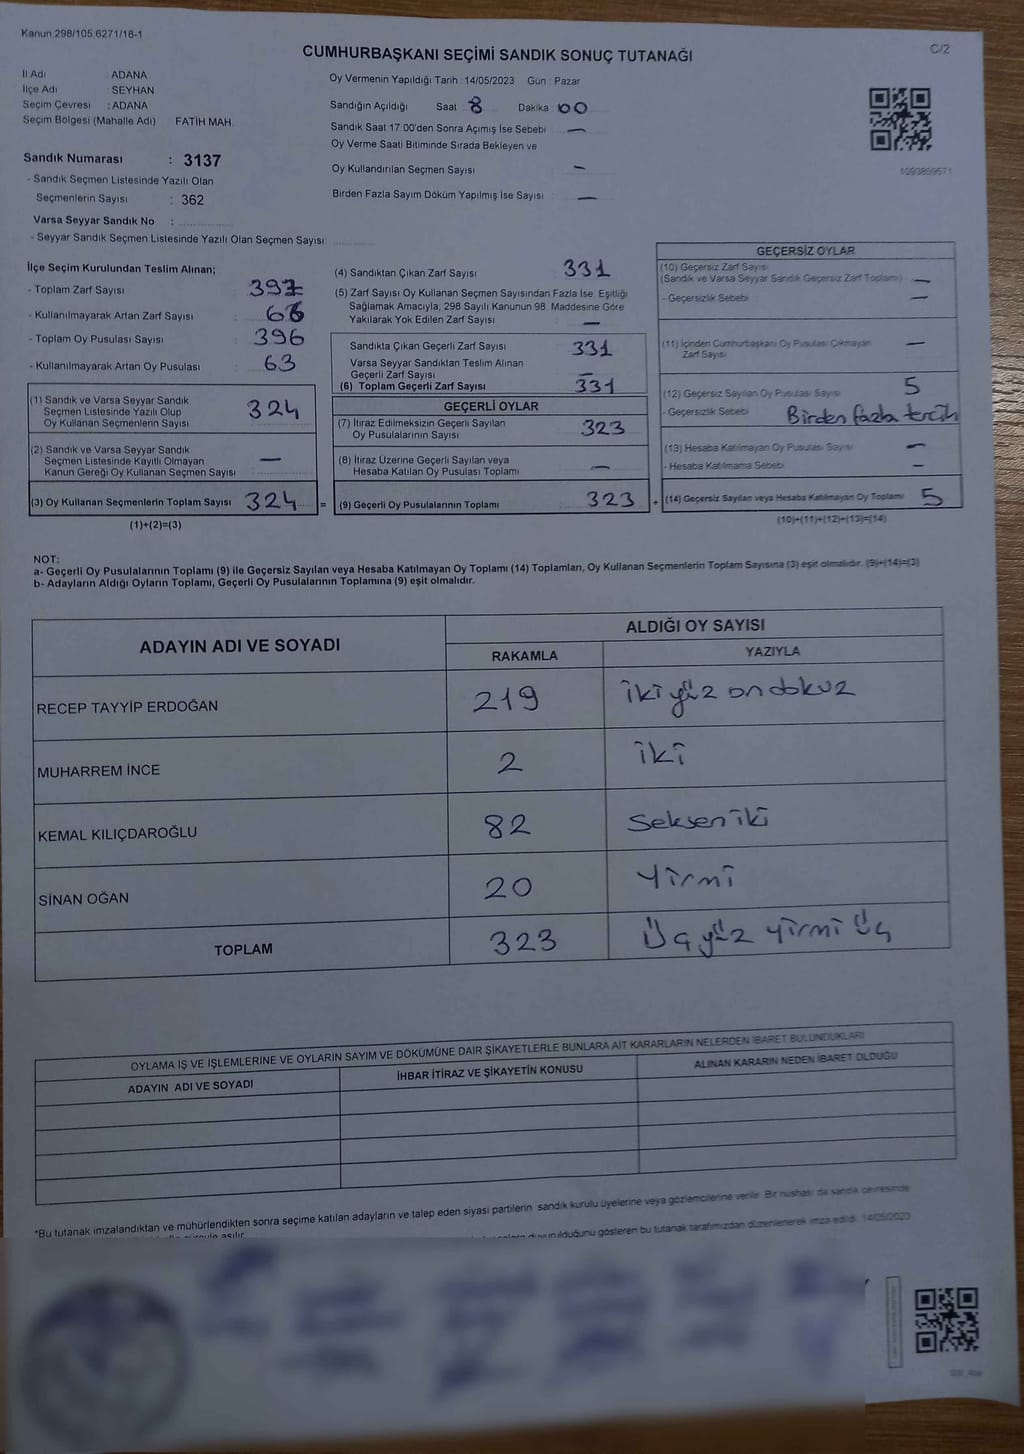 Kanun.298/105.6271/18-1
C/2
CUMHURBAŞKANI SEÇİMİ SANDIK SONUÇ TUTANAĞI
İl Adı : ADANA
İlçe Adı : SEYHAN
Seçim Çevresi : ADANA
Seçim Bölgesi (Mahalle Adı) FATİH MAH.
Sandık Numarası : 3137
- Sandık Seçmen Listesinde Yazılı Olan
Seçmenlerin Sayısı : 362
Varsa Seyyar Sandık No :
- Seyyar Sandık Seçmen Listesinde Yazılı Olan Seçmen Sayısı:
Oy Vermenin Yapıldığı Tarih : 14/05/2023 Gün : Pazar
Sandığın Açıldığı Saat : 8 Dakika : 00
Sandık Saat 17.00'den Sonra Açımış İse Sebebi : —
Oy Verme Saati Bitiminde Sırada Bekleyen ve
Oy Kullandırılan Seçmen Sayısı : —
Birden Fazla Sayım Döküm Yapılmış İse Sayısı : —
1093859571
İlçe Seçim Kurulundan Teslim Alınan;
- Toplam Zarf Sayısı : 397
- Kullanılmayarak Artan Zarf Sayısı : 66
- Toplam Oy Pusulası Sayısı : 396
- Kullanılmayarak Artan Oy Pusulası : 63
(1) Sandık ve Varsa Seyyar Sandık
Seçmen Listesinde Yazılı Olup
Oy Kullanan Seçmenlerin Sayısı : 324
(2) Sandık ve Varsa Seyyar Sandık
Seçmen Listesinde Kayıtlı Olmayan
Kanun Gereği Oy Kullanan Seçmen Sayısı : —
(3) Oy Kullanan Seçmenlerin Toplam Sayısı : 324 =
(1)+(2)=(3)
(4) Sandıktan Çıkan Zarf Sayısı : 331
(5) Zarf Sayısı Oy Kullanan Seçmen Sayısından Fazla İse, Eşitliği
Sağlamak Amacıyla, 298 Sayılı Kanunun 98. Maddesine Göre
Yakılarak Yok Edilen Zarf Sayısı : —
Sandıkta Çıkan Geçerli Zarf Sayısı : 331
Varsa Seyyar Sandıktan Teslim Alınan
Geçerli Zarf Sayısı : —
(6) Toplam Geçerli Zarf Sayısı : 331
GEÇERLİ OYLAR
(7) İtiraz Edilmeksizin Geçerli Sayılan
Oy Pusulalarının Sayısı : 323
(8) İtiraz Üzerine Geçerli Sayılan veya
Hesaba Katılan Oy Pusulası Toplamı : —
(9) Geçerli Oy Pusulalarının Toplamı : 323 +
GEÇERSİZ OYLAR
(10) Geçersiz Zarf Sayısı
(Sandık ve Varsa Seyyar Sandık Geçersiz Zarf Toplamı) : —
- Geçersizlik Sebebi : —
(11) İçinden Cumhurbaşkanı Oy Pusulası Çıkmayan
Zarf Sayısı : —
(12) Geçersiz Sayılan Oy Pusulası Sayısı : 5
- Geçersizlik Sebebi : Birden fazla tercih
(13) Hesaba Katılmayan Oy Pusulası Sayısı : —
- Hesaba Katılmama Sebebi : —
(14) Geçersiz Sayılan veya Hesaba Katılmayan Oy Toplamı : 5
(10)+(11)+(12)+(13)=(14)
NOT:
a- Geçerli Oy Pusulalarının Toplamı (9) ile Geçersiz Sayılan veya Hesaba Katılmayan Oy Toplamı (14) Toplamları, Oy Kullanan Seçmenlerin Toplam Sayısına (3) eşit olmalıdır. (9)+(14)=(3)
b- Adayların Aldığı Oyların Toplamı, Geçerli Oy Pusulalarının Toplamına (9) eşit olmalıdır.
ADAYIN ADI VE SOYADI
ALDIĞI OY SAYISI
RAKAMLA YAZIYLA
RECEP TAYYİP ERDOĞAN 219 iki yüz on dokuz
MUHARREM İNCE 2 iki
KEMAL KILIÇDAROĞLU 82 Seksen iki
SİNAN OĞAN 20 Yirmi
TOPLAM 323 Üç yüz yirmi üç
OYLAMA İŞ VE İŞLEMLERİNE VE OYLARIN SAYIM VE DÖKÜMÜNE DAİR ŞİKAYETLERLE BUNLARA AİT KARARLARIN NELERDEN İBARET BULUNDUKLARI
ADAYIN ADI VE SOYADI İHBAR İTİRAZ VE ŞİKAYETİN KONUSU ALINAN KARARIN NEDEN İBARET OLDUĞU
*Bu tutanak imzalandıktan ve mühürlendikten sonra seçime katılan adayların ve talep eden siyasi partilerin sandık kurulu üyelerine veya gözlemcilerine verilir. Bir nüshası da sandık çevresinde
duyurulduğunu gösteren bu tutanak tarafımızdan düzenlenerek imza edildi. 14/05/2023